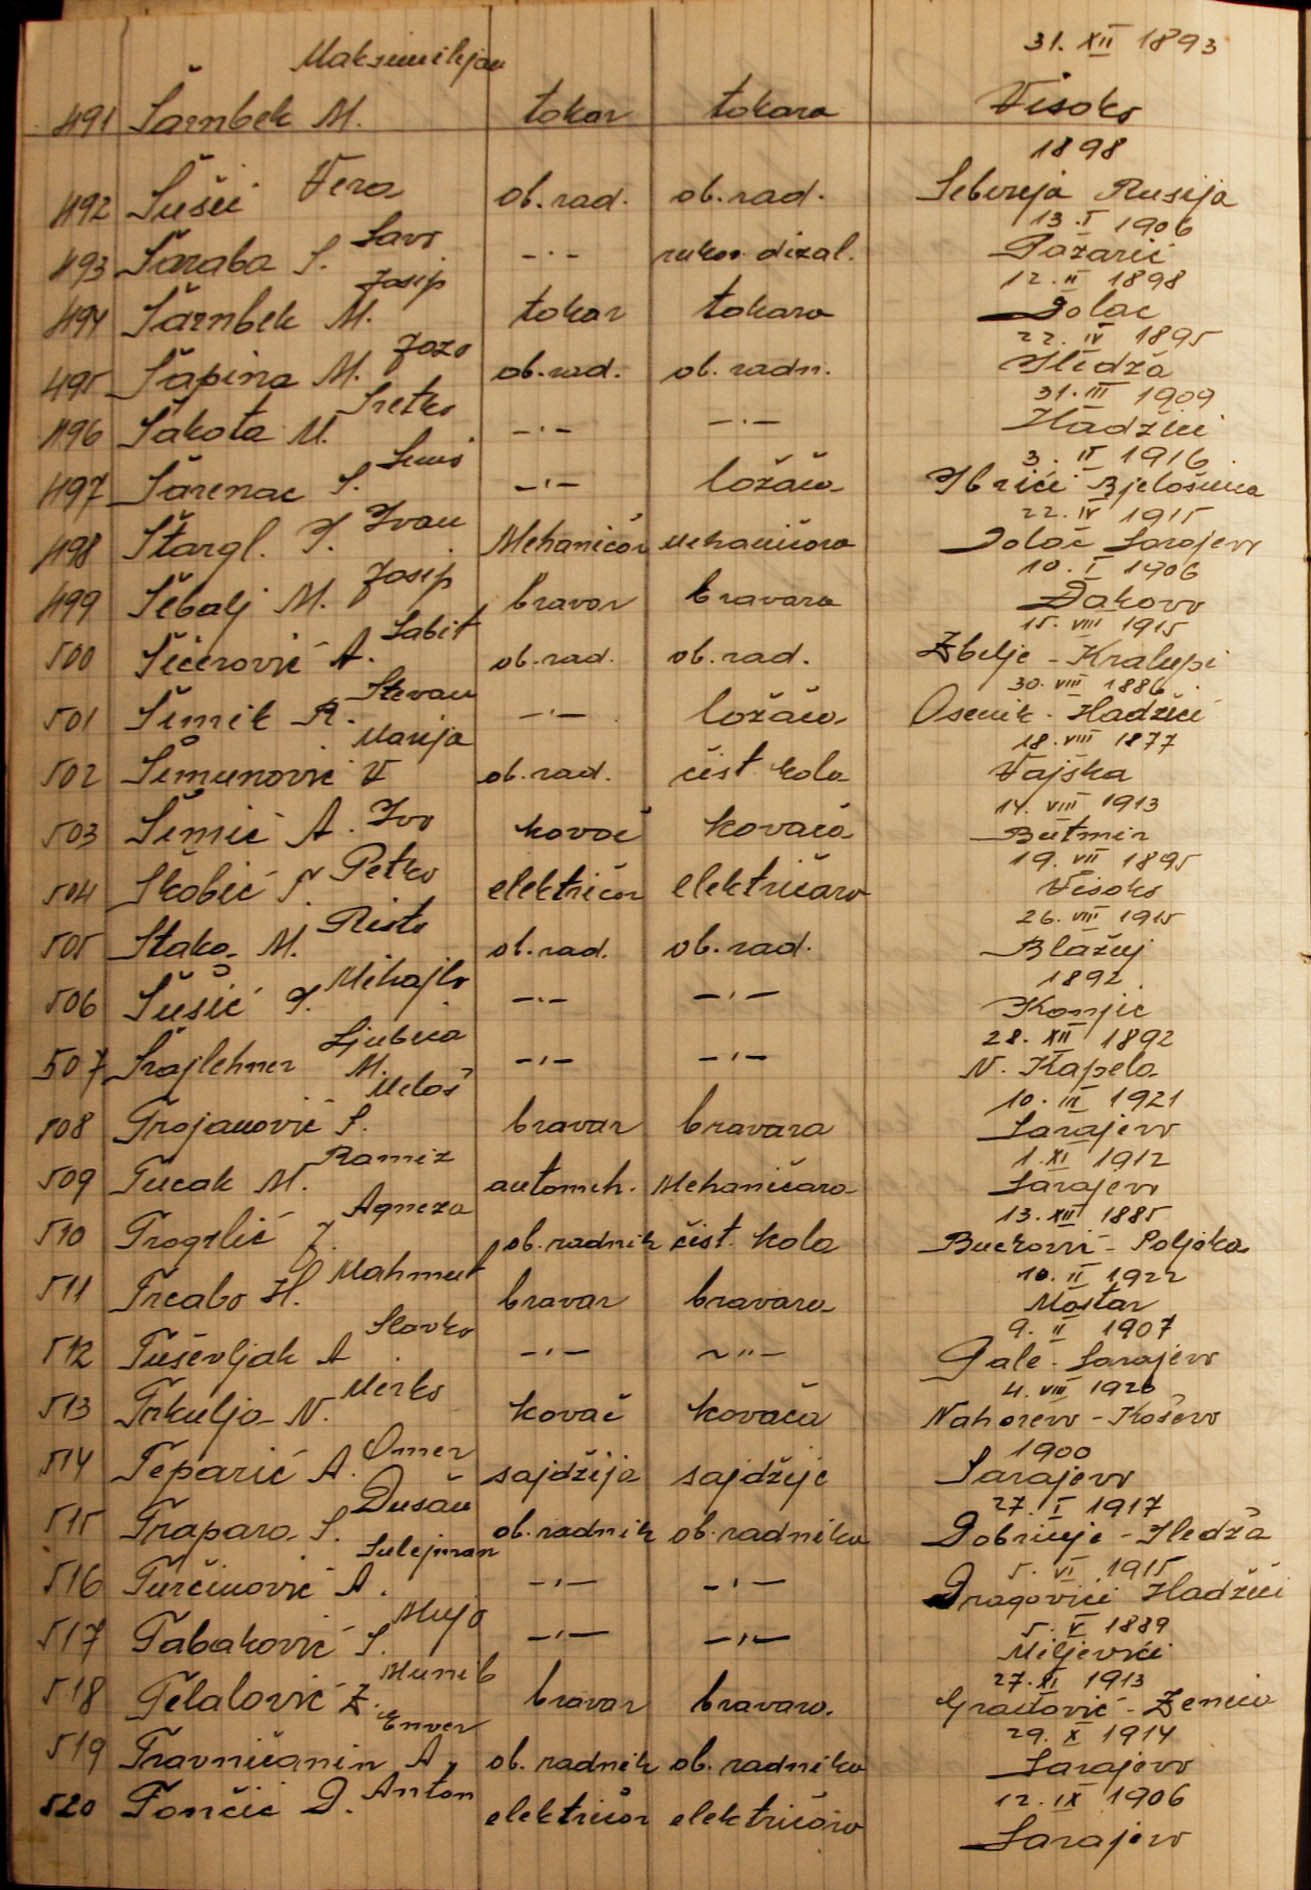 Maksimilijan 31. XII 1893
491 Šarnbek M. tokar tokara Visoko
1898
492 Šušić Vera ob. rad. ob. rad. Sebirija Rusija
Savo 13. I 1906
493 Šaraba S. -·- rukov. dizal. Pazarić
Josip 12. II 1898
494 Šarnbek M. tokar tokara Dolac
Jozo 22. IV 1895
495 Šapina M. ob. rad. ob. radn. Ilidža
Sretko 31. III 1909
496 Šakota M. -·- -·- Hadžići
Simo 3. II 1916
497 Šarenac S. -·- ložača Bjelašnica
Ivan 22. IV 1915
498 Štargl. J. Mehaničar Mehaničara Dolac Sarajevo
Josip 10. I 1906
499 Šebalj M. bravar bravara Đakovo
Sabit 15. VIII 1915
500 Šićerović A. ob. rad. ob. rad. Zbilje - Kralupi
Stevan 30. VIII 1886
501 Šimik R. -·- ložača Osenik - Hadžići
Marija 18. VIII 1877
502 Šimunović V ob. rad. čist. kola Vajska
Ivo 14. VIII 1913
503 Šimić A. kovač kovača Butmir
Petko 19. VII 1895
504 Škobić Š. električar električara Visoko
Risto 26. VIII 1915
505 Stako M. ob. rad. ob. rad. Blažuj
Mihajlo 1892
506 Šušić J. -·- -·- Konjic
Ljubica 28. XII 1892
507 Šrajlehner M. -·- -·- N. Kapela
Miloš 10. III 1921
508 Trojanović S. bravar bravara Sarajevo
Ramiz 1. XI 1912
509 Tucak M. automeh. Mehaničara Sarajevo
Agneza 13. XII 1885
510 Trogrlić J. ob. radnik čist. kola Bučkovići - Poljska
Mahmut 10. II 1922
511 Trcabo H. bravar bravara Mostar
Slavko 9. II 1907
512 Tuševljak A. -·- -"- Pale - Sarajevo
Mirko 4. VIII 1920
513 Trkulja N. kovač kovača Nahorevo - Koševo
Omer 1900
514 Teparić A. sajdžija sajdžije Sarajevo
Dušan 27. I 1917
515 Trapara S. ob. radnik ob. radnika Dobrinje - Iledža
Sulejman 5. VI 1915
516 Turčinović A. -·- -·- Dragovići Hadžići
Mujo 5. V 1889
517 Tabaković S. -·- -·- Miljevići
Munib 27. XI 1913
518 Telalović Z. bravar bravara Zenica
Enver 29. X 1914
519 Travničanin A. ob. radnik ob. radnika Sarajevo
Anton 12. IX 1906
520 Tončić D. električar električara Sarajevo